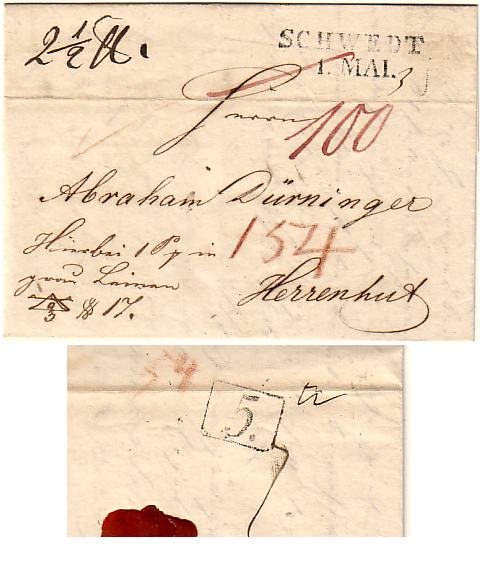 2 1/2 ℔.
SCHWEDT
1. MAI. 3
Herrn
100
Abraham Dürninger
154
Hierbei 1 P in
grau Leinen
Herrenhut
17.
5.